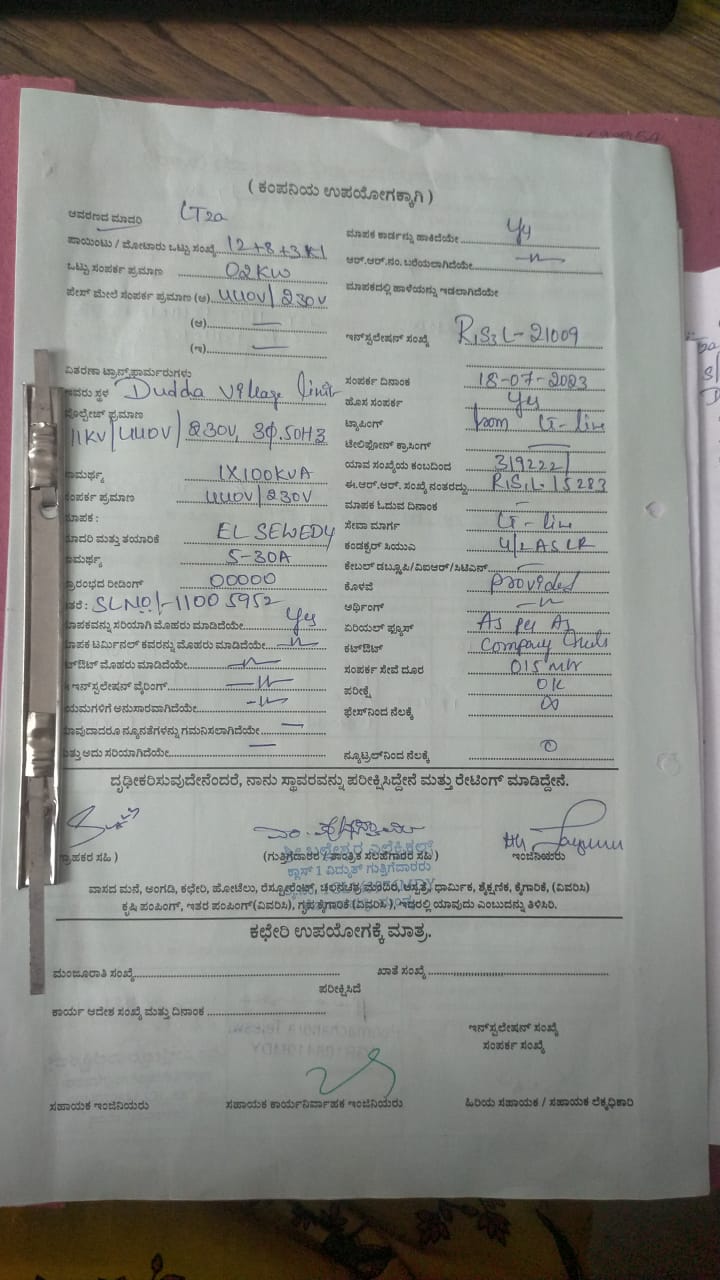 ( ಕಂಪನಿಯ ಉಪಯೋಗಕ್ಕಾಗಿ )
ಆವರಣದ ಮಾದರಿ LT2a
ಪಾಯಿಂಟು / ಮೋಟಾರು ಒಟ್ಟು ಸಂಖ್ಯೆ 12+8+3
ಒಟ್ಟು ಸಂಪರ್ಕ ಪ್ರಮಾಣ 02KW
ಪೇಸ್ ಮೇಲೆ ಸಂಪರ್ಕ ಪ್ರಮಾಣ (ಅ) 440V/230V
(ಆ) —
(ಇ) —
ವಿತರಣಾ ಟ್ರಾನ್ಸ್‌ಫಾರ್ಮರುಗಳು
ಸ್ಥಳ Dudda Village limit
ಪ್ರಮಾಣ
11KV/440V/230V, 3Ø, 50HZ
1X100KVA
ಸಂಪರ್ಕ ಪ್ರಮಾಣ 440V/230V
ಮಾಪಕ :
ಮಾದರಿ ಮತ್ತು ತಯಾರಿಕೆ EL SEWEDY
5-30A
ಪ್ರಾರಂಭದ ರೀಡಿಂಗ್ 00000
ಇತರೆ : SL NO:-11005952
ಮಾಪಕವನ್ನು ಸರಿಯಾಗಿ ಮೊಹರು ಮಾಡಿದೆಯೇ Yes
ಮಾಪಕ ಟರ್ಮಿನಲ್ ಕವರನ್ನು ಮೊಹರು ಮಾಡಿದೆಯೇ —"—
ಕಟ್‌ಔಟ್ ಮೊಹರು ಮಾಡಿದೆಯೇ —"—
ಇನ್‌ಸ್ಟಲೇಷನ್ ವೈರಿಂಗ್ —"—
ನಿಯಮಗಳಿಗೆ ಅನುಸಾರವಾಗಿದೆಯೇ —"—
ಯಾವುದಾದರೂ ನ್ಯೂನತೆಗಳನ್ನು ಗಮನಿಸಲಾಗಿದೆಯೇ —
ಮತ್ತು ಅದು ಸರಿಯಾಗಿದೆಯೇ —
ಮಾಪಕ ಕಾರ್ಡನ್ನು ಹಾಕಿದೆಯೇ Yes
ಆರ್.ಆರ್.ನಂ. ಬರೆಯಲಾಗಿದೆಯೇ —"—
ಮಾಪಕದಲ್ಲಿ ಹಾಳೆಯನ್ನು ಇಡಲಾಗಿದೆಯೇ
ಇನ್‌ಸ್ಟಲೇಷನ್ ಸಂಖ್ಯೆ R1S3L-21009
ಸಂಪರ್ಕ ದಿನಾಂಕ 18-07-2023
ಹೊಸ ಸಂಪರ್ಕ Yes
ಟ್ಯಾಪಿಂಗ್ from LT-line
ಟೆಲಿಫೋನ್ ಕ್ರಾಸಿಂಗ್ —
ಯಾವ ಸಂಖ್ಯೆಯ ಕಂಬದಿಂದ 319222/
ಈ.ಆರ್.ಆರ್. ಸಂಖ್ಯೆ ನಂತರದ್ದು R1S1L-15283
ಮಾಪಕ ಓದುವ ದಿನಾಂಕ —
ಸೇವಾ ಮಾರ್ಗ LT-line
ಕಂಡಕ್ಟರ್ ಸಿಯುಎ
ಕೇಬಲ್ ಡಬ್ಲ್ಯೂಪಿ/ವಿಐಆರ್/ಸಿಟಿಎಸ್ —
ಕೊಳವೆ provided
ಅರ್ಥಿಂಗ್ —"—
ಏರಿಯಲ್ ಫ್ಯೂಸ್ As per
ಕಟ್‌ಔಟ್ Company
ಸಂಪರ್ಕ ಸೇವೆ ದೂರ 015 Mtr
ಪರೀಕ್ಷೆ OK
ಫೇಸ್‌ನಿಂದ ನೆಲಕ್ಕೆ ∞
ನ್ಯೂಟ್ರಲ್‌ನಿಂದ ನೆಲಕ್ಕೆ 0
ದೃಢೀಕರಿಸುವುದೇನೆಂದರೆ, ನಾನು ಸ್ಥಾವರವನ್ನು ಪರೀಕ್ಷಿಸಿದ್ದೇನೆ ಮತ್ತು ರೇಟಿಂಗ್ ಮಾಡಿದ್ದೇನೆ.
(ಗ್ರಾಹಕರ ಸಹಿ )
(ಗುತ್ತಿಗೆದಾರರ / ತಾಂತ್ರಿಕ ಸಲಹೆಗಾರರ ಸಹಿ )
ಇಂಜಿನಿಯರು
ಕ್ಲಾಸ್ 1 ವಿದ್ಯುತ್ ಗುತ್ತಿಗೆದಾರರು
ವಾಸದ ಮನೆ, ಅಂಗಡಿ, ಕಛೇರಿ, ಹೋಟೆಲು, ರೆಸ್ಟೋರೆಂಟ್, ಚಲನಚಿತ್ರ ಮಂದಿರ, ಆಸ್ಪತ್ರೆ, ಧಾರ್ಮಿಕ, ಶೈಕ್ಷಣಿಕ, ಕೈಗಾರಿಕೆ, (ವಿವರಿಸಿ)
ಕೃಷಿ ಪಂಪಿಂಗ್, ಇತರ ಪಂಪಿಂಗ್(ವಿವರಿಸಿ), ಗೃಹಕೈಗಾರಿಕೆ (ವಿವರಿಸಿ), ಇದರಲ್ಲಿ ಯಾವುದು ಎಂಬುದನ್ನು ತಿಳಿಸಿರಿ.
ಕಛೇರಿ ಉಪಯೋಗಕ್ಕೆ ಮಾತ್ರ.
ಮಂಜೂರಾತಿ ಸಂಖ್ಯೆ
ಖಾತೆ ಸಂಖ್ಯೆ
ಪರೀಕ್ಷಿಸಿದೆ
ಕಾರ್ಯ ಆದೇಶ ಸಂಖ್ಯೆ ಮತ್ತು ದಿನಾಂಕ
ಇನ್‌ಸ್ಟಲೇಷನ್ ಸಂಖ್ಯೆ
ಸಂಪರ್ಕ ಸಂಖ್ಯೆ
ಸಹಾಯಕ ಇಂಜಿನಿಯರು
ಸಹಾಯಕ ಕಾರ್ಯನಿರ್ವಾಹಕ ಇಂಜಿನಿಯರು
ಹಿರಿಯ ಸಹಾಯಕ / ಸಹಾಯಕ ಲೆಕ್ಕಧಿಕಾರಿ